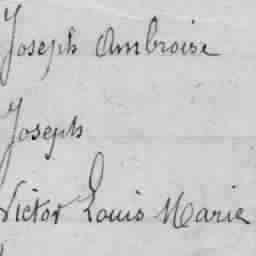 Joseph Ambroise
Joseph
Victor Louis Marie